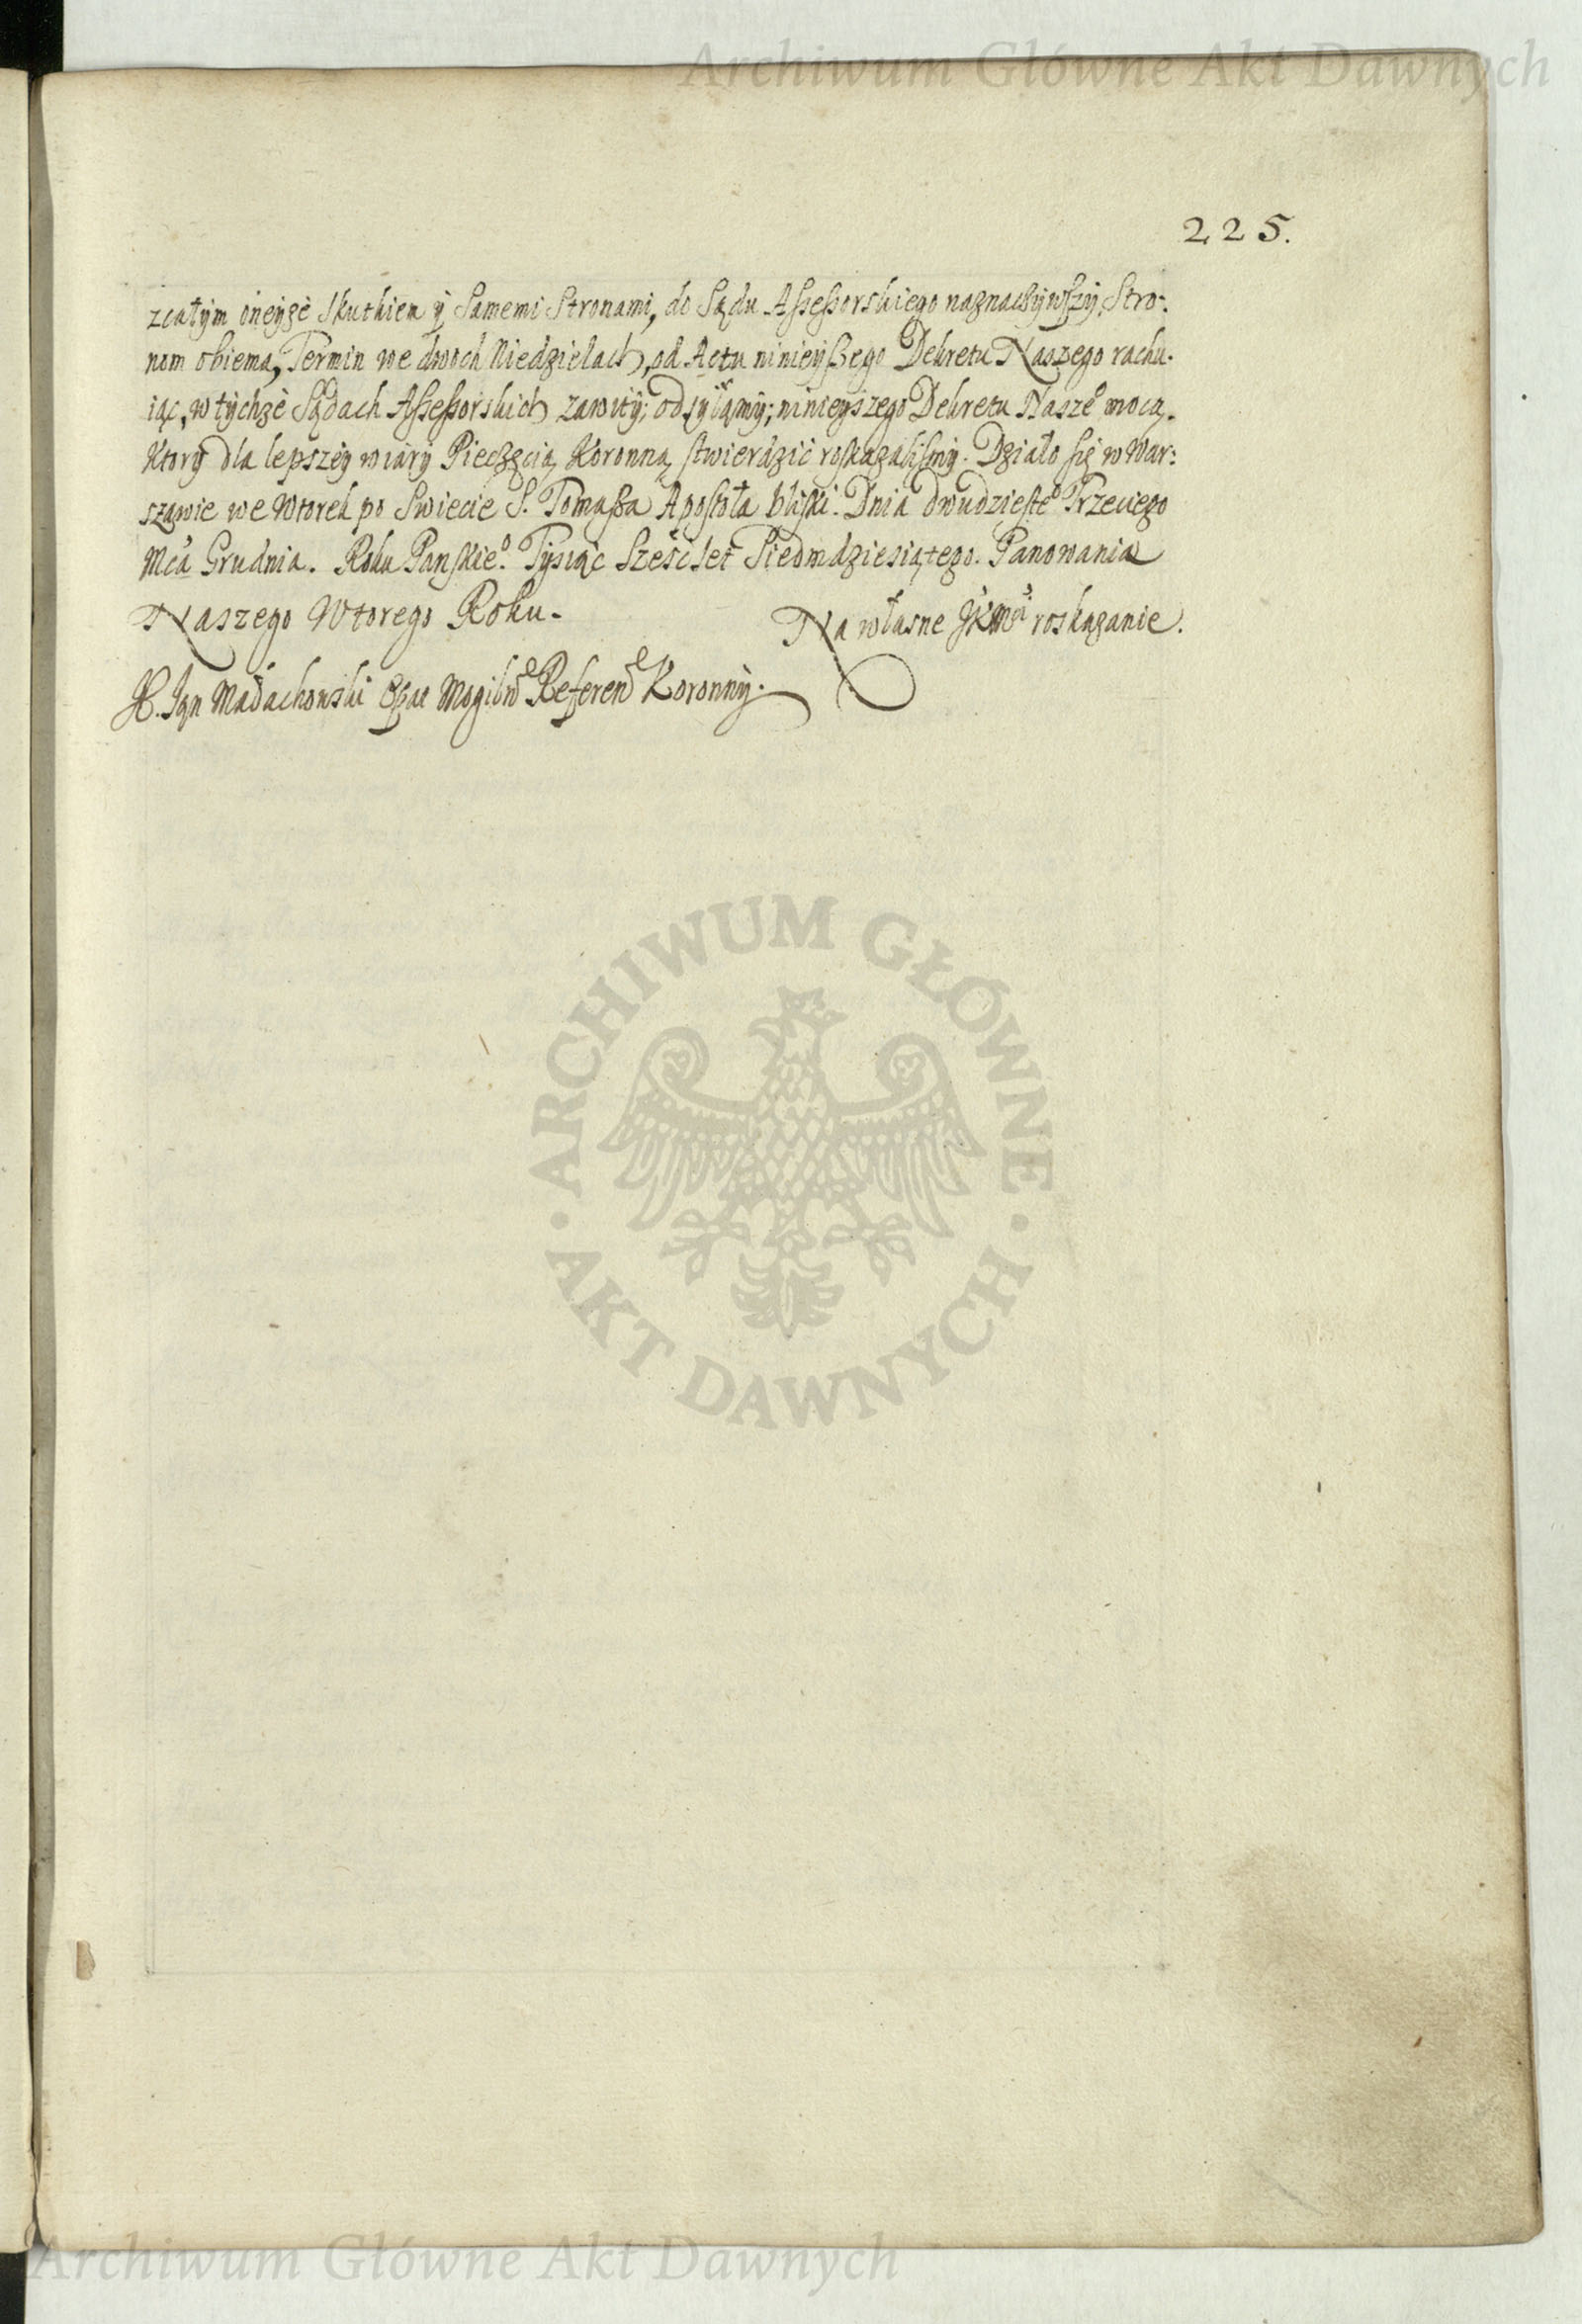 Archiwum Główne Akt Dawnych
225.
zcałym oneyże skutkiem y samemi Stronami, do Sądu Assessorskiego naznaczywszy, Stro:
nom obiema, Termin we dwoch Niedzielach, od Actu ninieyszego Dekretu Naszego rachu-
iąc, w tychże Sądach Assessorskich zawity; odsyłamy; ninieyszego Dekretu Nasze⁰ mocą.
Ktory dla lepszey wiary Pieczęcią Koronną stwierdzić roskazalismy. Działo się w War:
szawie we Wtorek po Swiecie S. Tomasza Apostoła bliski. Dnia dwudzieste⁰ Trzeciego
Mca Grudnia. Roku Panskie⁰. Tysiąc Sześcset Siedmdziesiątego. Panowania
Naszego Wtorego Roku.
Na własne JKMci roskazanie.
Jan Małachowski Opat Mogils Referend Koronny.
ARCHIWUM GŁÓWNE
AKT DAWNYCH
Archiwum Główne Akt Dawnych